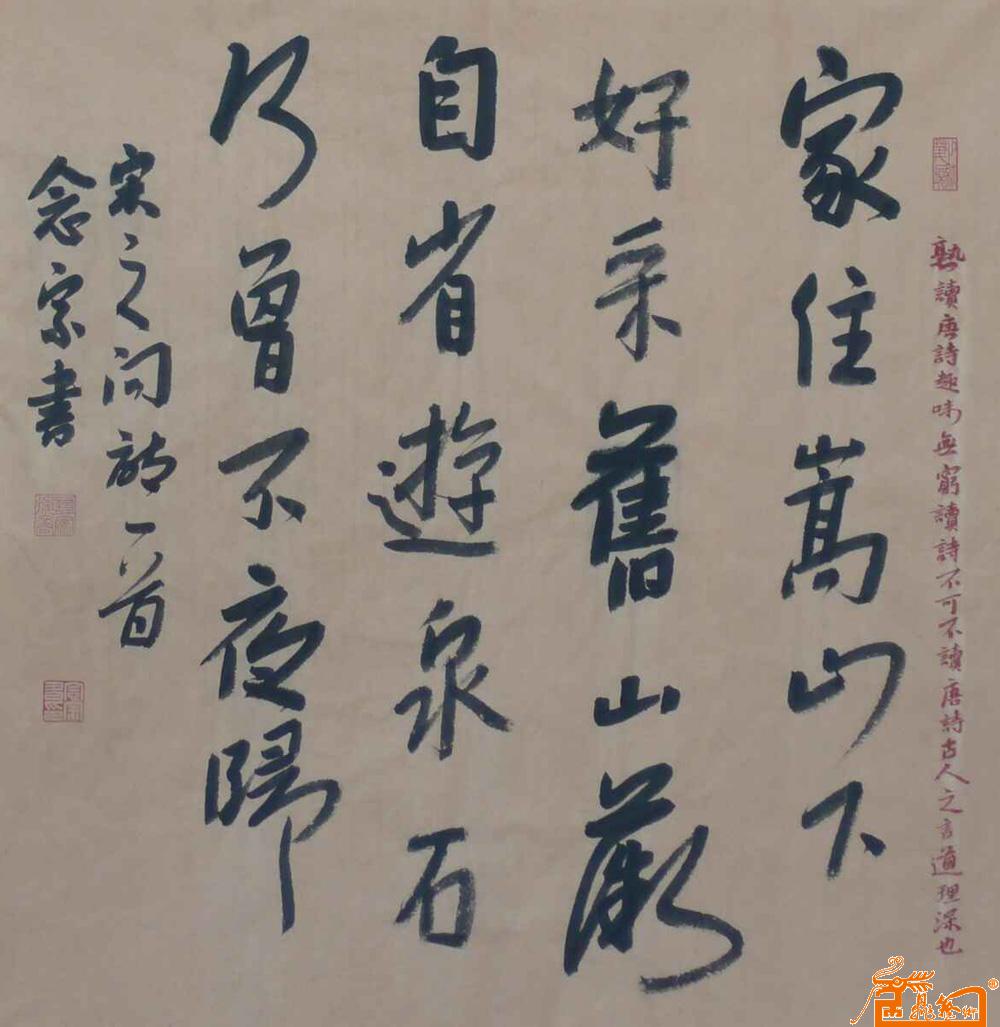 熟讀唐詩趣味無窮讀詩不可不讀唐詩古人之言道理深也
家住嵩山下
好采舊山薇
自省遊泉石
何曾不夜歸
宋之问詩一首
念宗書